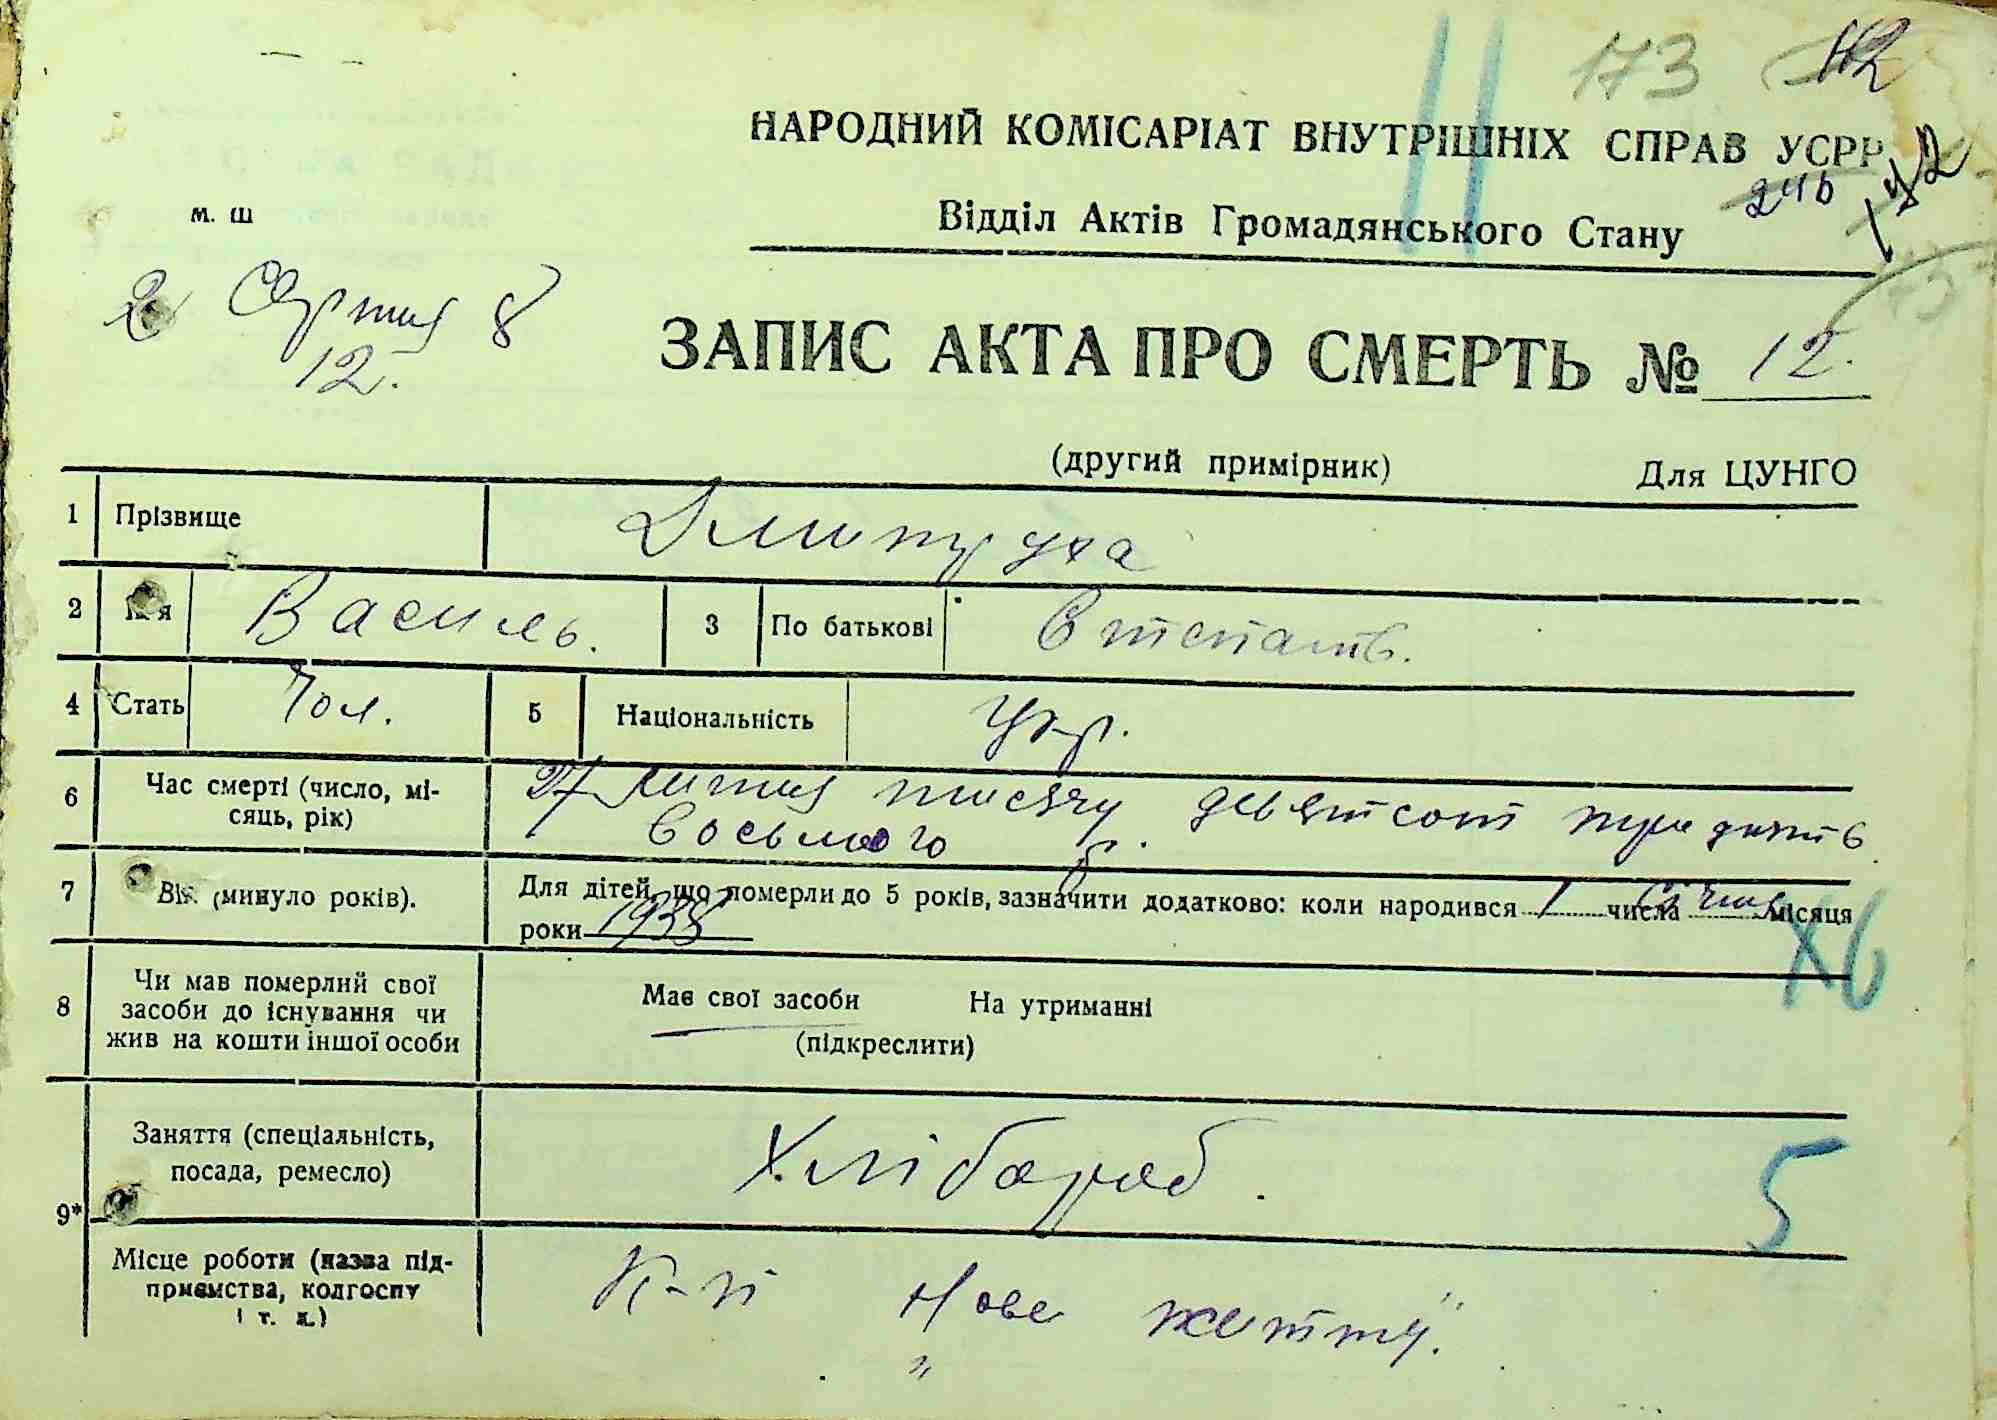 173 112
НАРОДНИЙ КОМІСАРІАТ ВНУТРІШНІХ СПРАВ УСРР
м. ш
Відділ Актів Громадянського Стану
2 Серпня 8
12.
ЗАПИС АКТА ПРО СМЕРТЬ № 12.
(другий примірник) Для ЦУНГО
1 Прізвище Дмитруха
2 Ім'я Василь. 3 По батькові Степанов.
4 Стать Чол. 5 Національність Укр.
6 Час смерті (число, мі-
сяць, рік)
27 липня тисячу девятсот тридцять
восьмого р.
7 Вік (минуло років). Для дітей, що померли до 5 років, зазначити додатково: коли народився 1 числа Січня місяця
роки 1938
Х6
8 Чи мав померлий свої
засоби до існування чи
жив на кошти іншої особи
Має свої засоби На утриманні
(підкреслити)
9* Заняття (спеціальність,
посада, ремесло)
Хлібороб.
5
Місце роботи (назва під-
приємства, колгоспу
і т. д.)
К-п „Нове життя".